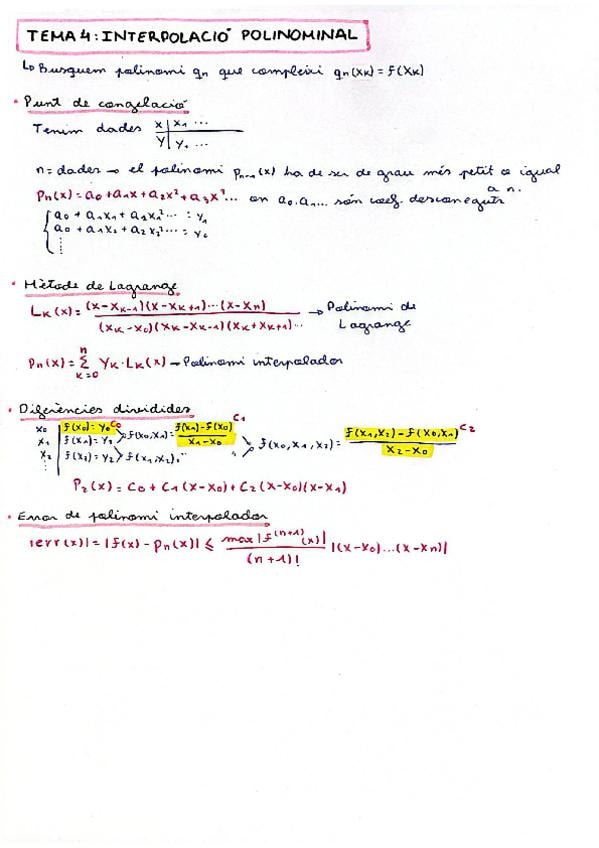 TEMA 4: INTERPOLACIÓ POLINOMINAL
↳ Busquem polinomi qn que compleixi qn(xk) = f(xk)
• Punt de congelació
Tenim dades x | x1 ...
y | y1 ...
n = dades → el polinomi Pn-1(x) ha de ser de grau més petit o igual a n.
Pn(x) = a0 + a1x + a2x² + a3x³... on a0, a1... són coef. desconeguts
{ a0 + a1x1 + a2x1² ... : y1
a0 + a1x2 + a2x2² ... : y2
⋮
• Mètode de Lagrange
Lk(x) = (x-xk-1)(x-xk+1)...(x-xn) / (xk-x0)(xk-xk-1)(xk+xk+1)... → Polinomi de
Lagrange
Pn(x) = Σ(k=0, n) yk · Lk(x) → Polinomi interpolador
• Diferències dividides
x0 | f(x0) = y0 C0 > f(x0,x1) = f(x1)-f(x0) / x1-x0 C1
x1 | f(x1) = y1 > f(x0,x1,x2) = f(x1,x2)-f(x0,x1) / x2-x0 C2
x2 | f(x2) = y2 > f(x1,x2)...
P2(x) = C0 + C1(x-x0) + C2(x-x0)(x-x1)
• Error de polinomi interpolador
|err(x)| = |f(x) - Pn(x)| ≤ max|f(n+1)(x)| / (n+1)! |(x-x0)...(x-xn)|